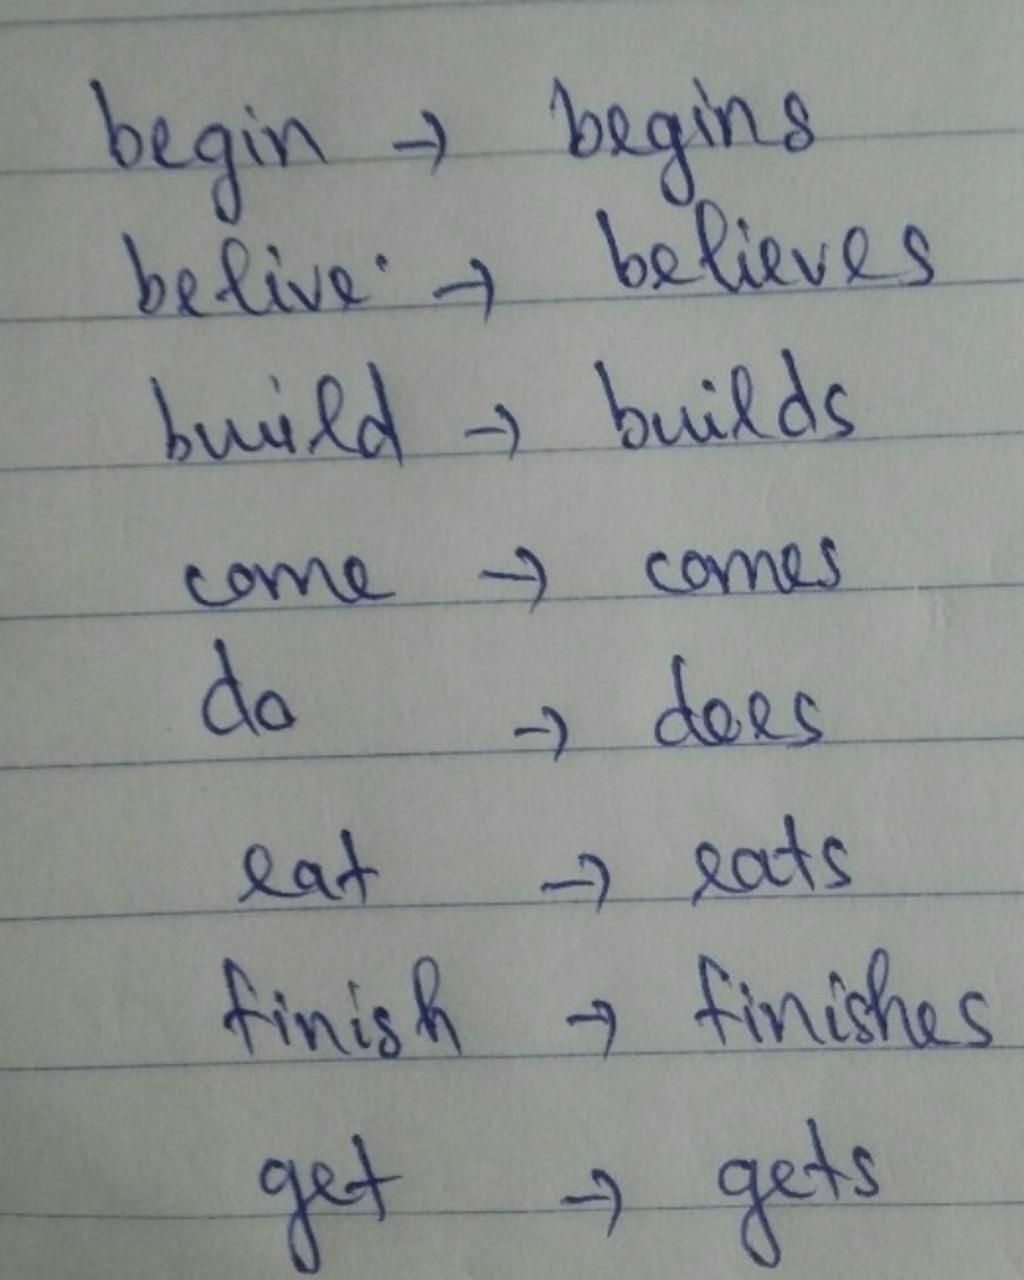 begin → begins
belive → believes
build → builds
come → comes
do → does
eat → eats
finish → finishes
get → gets